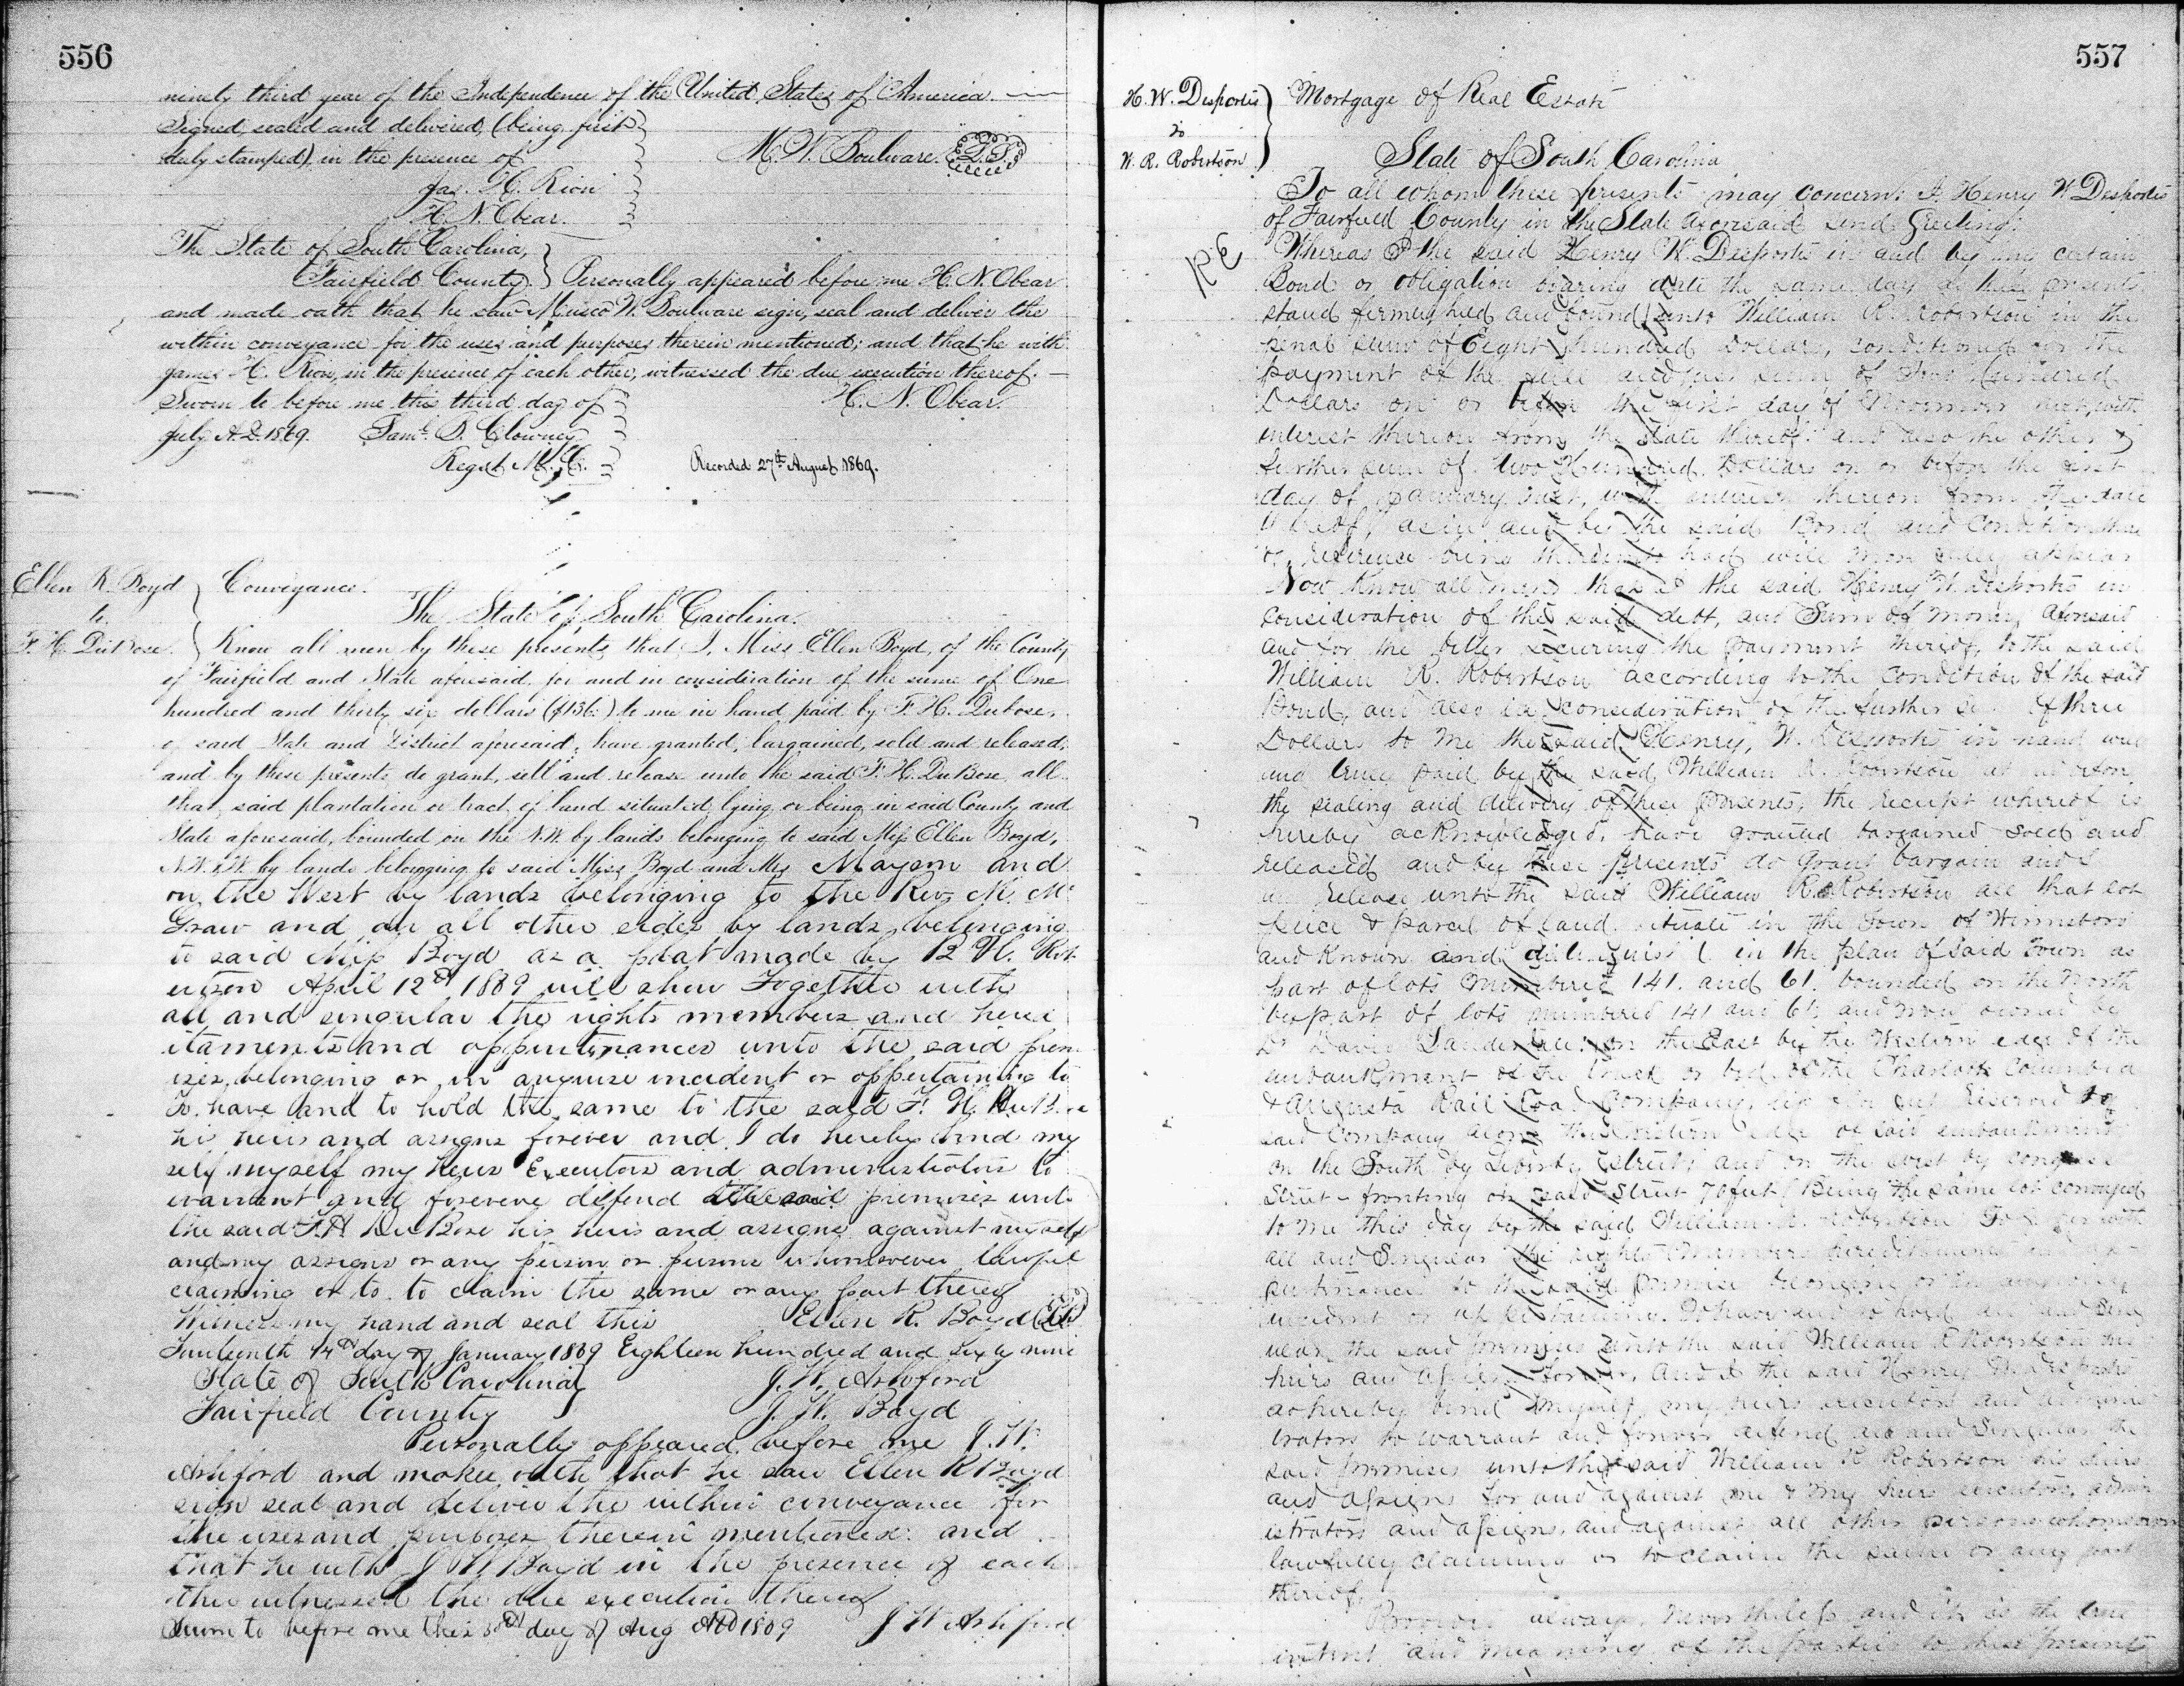 556
ninety third year of the Independence of the United States of America.
Signed, sealed and delivered, (being first
duly stamped) in the presence of
M. W. Boulware. L.S.
Jas. H. Rion
H. N. Obear.
The State of South Carolina,
Fairfield County. } Personally appeared before me H. N. Obear
and made oath that he saw Musco W. Boulware sign, seal and deliver the
within conveyance for the uses and purposes therein mentioned; and that he with
James H. Rion, in the presence of each other, witnessed the due execution thereof.
Sworn to before me this third day of
H. N. Obear.
July A.D. 1869. Saml. B. Clowney
Regist M. C.
Recorded 27th August 1869.
Ellen R. Boyd
to
F. H. DuBose.
Conveyance.
The State of South Carolina.
Know all men by these presents that, I, Miss Ellen Boyd, of the County
of Fairfield and State aforesaid, for and in consideration of the sum of One
hundred and thirty six dollars ($136.) to me in hand paid by F. H. Dubose,
of said State and District aforesaid, have granted, bargained, sold and released,
and by these presents do grant, sell and release unto the said F. H. DuBose, all
that said plantation or tract of land situated, lying or being in said County and
State aforesaid, bounded on the N.W. by lands belonging to said Miss Ellen Boyd,
N.W. & W. by lands belonging to said Miss Boyd and Mrs Mayson and
on the West by lands belonging to the Rev M. Mc
Graw and on all other sides by lands belonging
to said Miss Boyd as a plat made by B H. Rob
ertson April 12th 1889 will show Together with
all and singular the rights members and hered
itaments and appurtenances unto the said prem
ises, belonging or in anywise incident or appertaining to
To have and to hold the same to the said F. H. DuBose
his heirs and assigns forever and I do hereby bind my
self myself my heirs Executors and administrators to
warrant and forever defend the said premises unto
the said F. H DuBose his heirs and assigns against myself
and my assigns or any person or persons whomsoever lawful
claiming or to to claim the same or any part thereof
Witness my hand and seal this
Ellen R. Boyd
Fourteenth 14th day of January 1869 Eighteen hundred and sixty nine
State of South Carolina
J. W. Ashford
Fairfield County
J. H. Boyd
Personally appeared before me J. W.
Ashford and makes oath that he saw Ellen R Boyd
sign seal and deliver the within conveyance for
the uses and purposes therein mentioned: and
that he with J H. Boyd in the presence of each
other witnessed the due execution thereof
Sworn to before me this day of Aug AD 1869
J W Ashford
557
H. W. Desportes
to
W. R. Robertson
Mortgage of Real Estate
State of South Carolina
To all whom these presents may concern: I Henry W Desportes
of Fairfield County in the State aforesaid send Greeting.
RE
Whereas I the said Henry W. Desportes in and by my certain
Bond or obligation bearing date the same day as these presents
stand firmly held and bound unto William R. Robertson in the
penal sum of Eight hundred Dollars, conditioned for the
payment of the full and just sum of Two Hundred
Dollars on or before the first day of November next, with
interest thereon from the date thereof: and also the other &
further sum of two Hundred Dollars on or before the first
day of January next, with interest thereon from the date
thereof, as in and by the said Bond and Condition there
of, reference being thereunto had will more fully appear
Now Know all men that I the said Henry W. Desportes in
consideration of the said debt, and Sum of money aforesaid
and for the better securing the payment thereof, to the said
William R. Robertson according to the condition of the said
Bond, and also in consideration of the further sum of three
Dollars to me the said Henry, W. Desportes in hand well
and truly paid by the said William R. Robertson at and before
the sealing and delivery of these presents, the receipt whereof is
hereby acknowledged, have granted bargained sold and
released and by these presents do grant bargain and
release unto the said William R. Robertson all that lot
piece & parcel of land situate in the Town of Winnsboro
and known and distinguished in the plan of said Town as
part of lots numbered 141. and 61. bounded on the North
by part of lots numbered 141 and 61, and now owned by
Dr David on the East by the Western edge of the
embankment of the track or bed of the Charlotte Columbia
& Augusta Rail Road Company, reserved to
said Company along the western edge of said embankment
on the South by Liberty street; and on the west by Congress
Street - fronting on said Street 70 feet (Being the same lot conveyed
to me this day by the said William R. Robertson Together with
all and Singular the rights members hereditaments and
purtenances to the said premises belonging or in any wise
incident or appertaining. To have and to hold all and Sing
ular the said premises unto the said William R Robertson his
heirs and assigns forever. And I the said Henry W. Desportes
do hereby bind myself, my heirs executors and adminis
trators to warrant and forever defend all and Singular the
said premises unto the said William R Robertson his heirs
and assigns for and against me & my heirs executors, admin
istrators and assigns, and against all other persons whomsoever
lawfully claiming or to claim the same or any part
thereof.
Provided always, nevertheless, and it is the true
intent and meaning of the parties to these presents